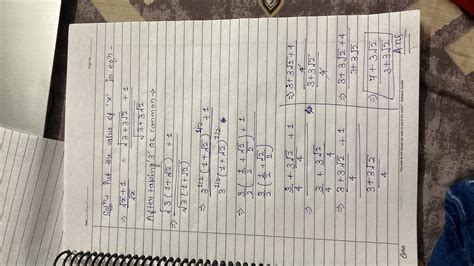 Solⁿ:- Put the value of 'x' in eqⁿ -
⇒ √x + 1 / √x = √3+3√2 + 1 / √3+3√2
After taking '3' as common →
⇒ √3(1+√2) + 1 / √3(1+√2)
⇒ 3^1/2 (1+√2)^1/2 + 1 / 3^1/2 (1+√2)^1/2
⇒ 3/2 (1/2 + √2/2) + 1 / 3/2 (1/2 + √2/2)
⇒ 3/4 + 3√2/4 + 1 / 3/4 + 3√2/4
⇒ 3+3√2/4 + 1 / 3+3√2/4
⇒ 3+3√2+4 / 4 / 3+3√2 / 4
⇒ 3+3√2+4 / 3+3√2
⇒ 7+3√2 / 3+3√2
Ans